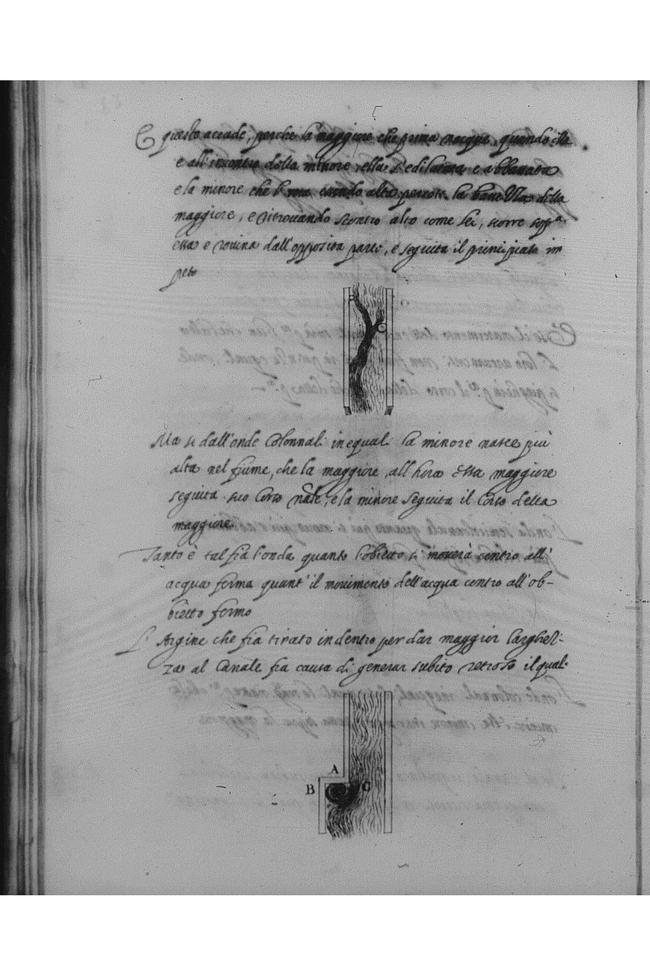 E questo accade, perche la maggiore che prima nacque, quando
e all'incontro della minore
e la minore che percote la della
maggiore, e ritrovando scontro alto come lei, scorre sopra
essa e rovina dall'opposita parte, e seguita il principiato im
peto
B
C
Ma se dall'onde Colonnali inequali la minore nasce piu
alta nel fiume, che la maggiore, all'hora essa maggiore
seguita suo Corso nāle, e la minore seguita il Corso della
maggiore
Tanto e tal fia l'onda quanto l'obietto si moverà contro all'
acqua ferma quant'il movimento dell'acqua contro all'ob-
bietto fermo
L'Argine che fia tirato indentro per dar maggior larghez-
za al Canale fia causa di generar subito retroso il qual
A
B
C